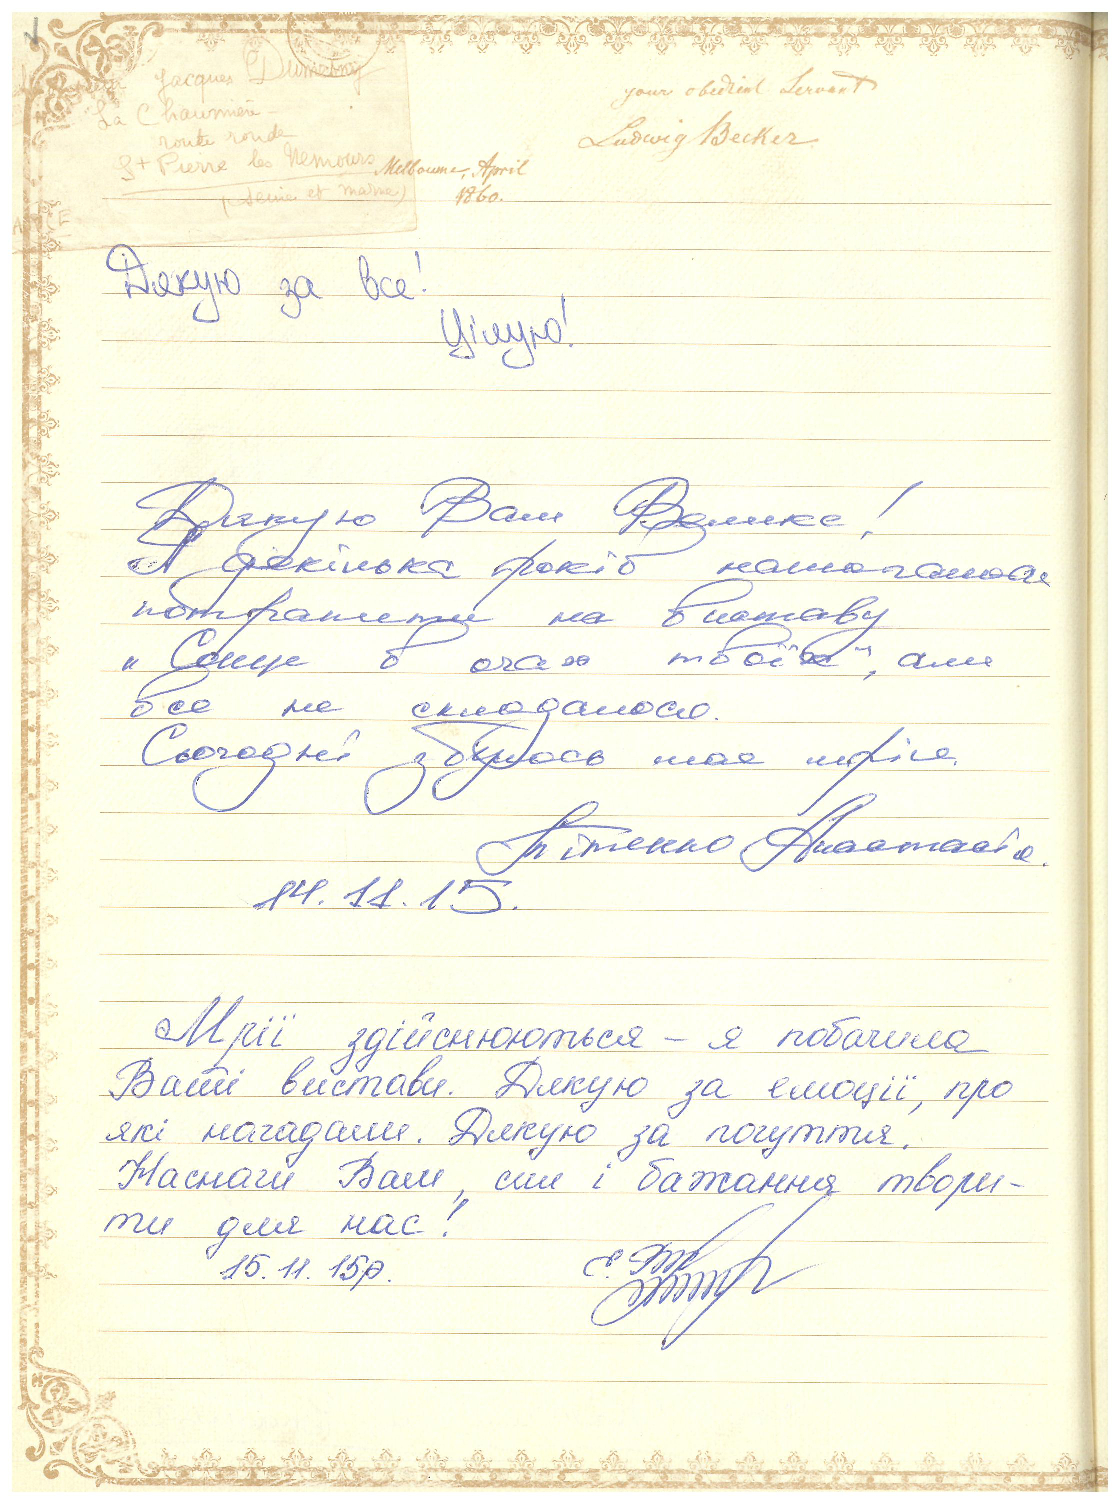 Jacques Dumarchey
La Chaumière
route ronde
St Pierre les Nemours
(Seine et Marne)
your obedient Servant
Ludwig Becker
Melbourne, April
1860.
Дякую за все!
Цілую!
Дякую Вам Велике!
Я декілька років намагалася
потрапити на виставу
"Сонце в очах твоїх", але
все не складалося.
Сьогодні збулась моя мрія.
Анастасія.
14.11.15.
Мрії здійснюються - я побачила
Ваші вистави. Дякую за емоції, про
які нагадали. Дякую за почуття.
Наснаги Вам, сил і бажання твори-
ти для нас!
15.11.15р.